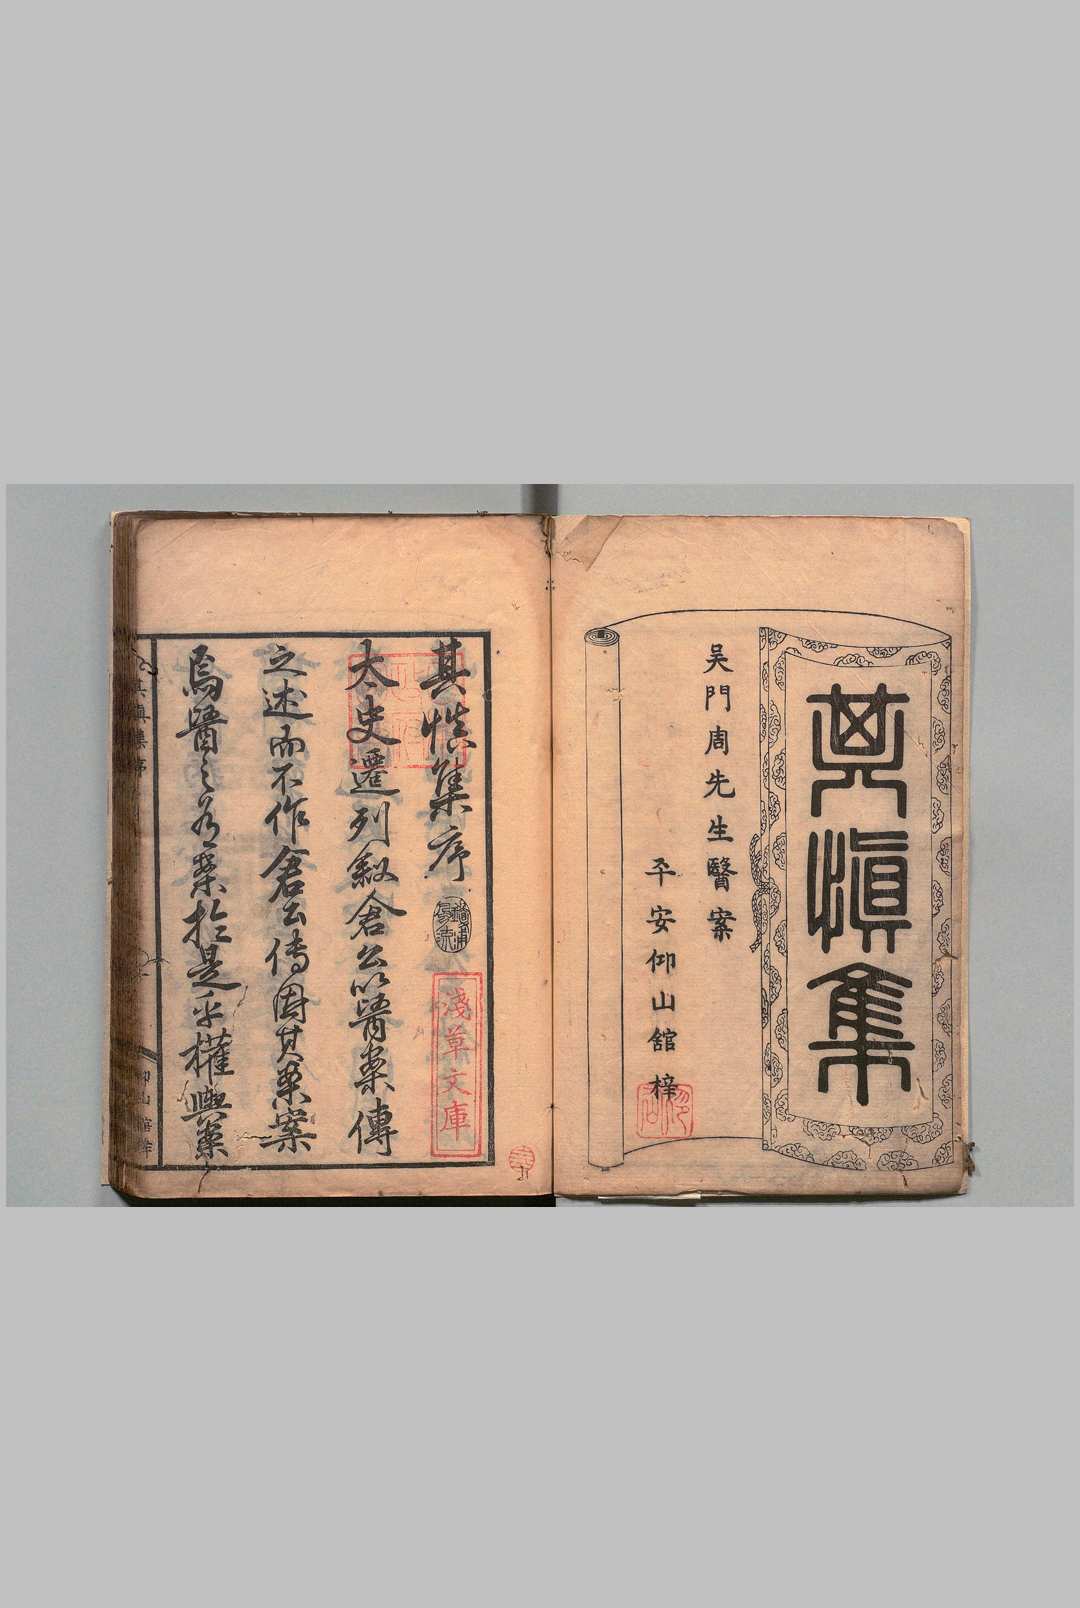 其慎集
吳門周先生醫案
平安仰山館梓
其慎集序
淺草文庫
太史遷列叙倉公以醫案傳
之述而不作倉公傳因其藥案
焉醫之有案於是乎權輿藥
其慎集序
仰山館梓